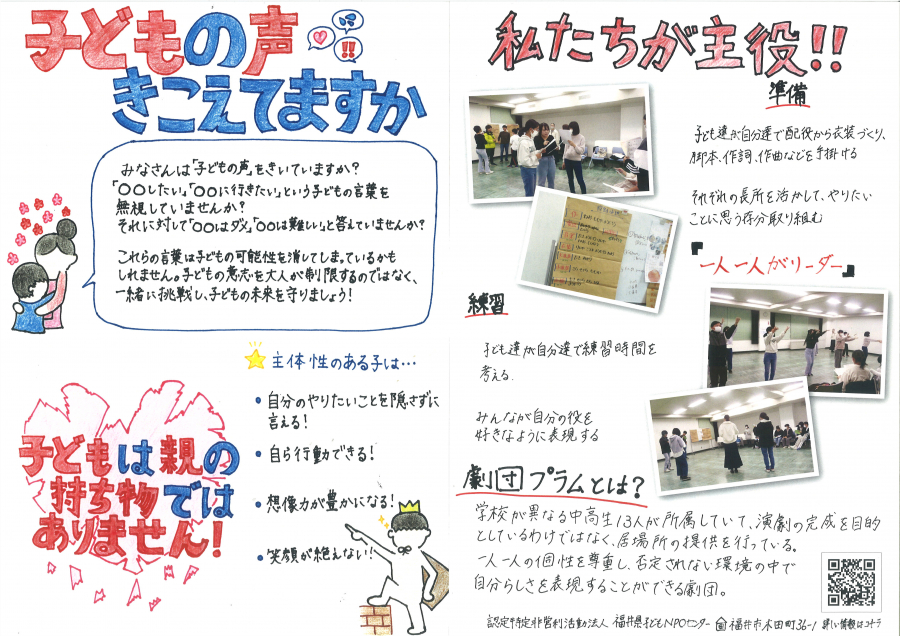 子どもの声
きこえてますか
みなさんは「子どもの声」をきいていますか？
「〇〇したい」「〇〇に行きたい」という子どもの言葉を
無視していませんか？
それに対して「〇〇はダメ」「〇〇は難しい」と答えていませんか？
これらの言葉は子どもの可能性を消してしまっているかも
しれません。子どもの意志を大人が制限するのではなく、
一緒に挑戦し、子どもの未来を守りましょう！
主体性のある子は…
・自分のやりたいことを隠さずに
言える！
・自ら行動できる！
・想像力が豊かになる！
・笑顔が絶えない！
子どもは親の
持ち物では
ありません！
私たちが主役!!
準備
子ども達が自分達で配役から衣装づくり、
脚本、作詞、作曲などを手掛ける
それぞれの長所を活かして、やりたい
ことに思う存分取り組む
『一人一人がリーダー』
練習
子ども達が自分達で練習時間を
考える.
みんなが自分の役を
好きなように表現する
劇団プラムとは？
学校が異なる中高生13人が所属していて、演劇の完成を目的
としているわけではなく、居場所の提供を行っている。
一人一人の個性を尊重し、否定されない環境の中で
自分らしさを表現することができる劇団。
認定特定非営利活動法人 福井県子どもNPOセンター 福井市木田町36-1 詳しい情報はコチラ